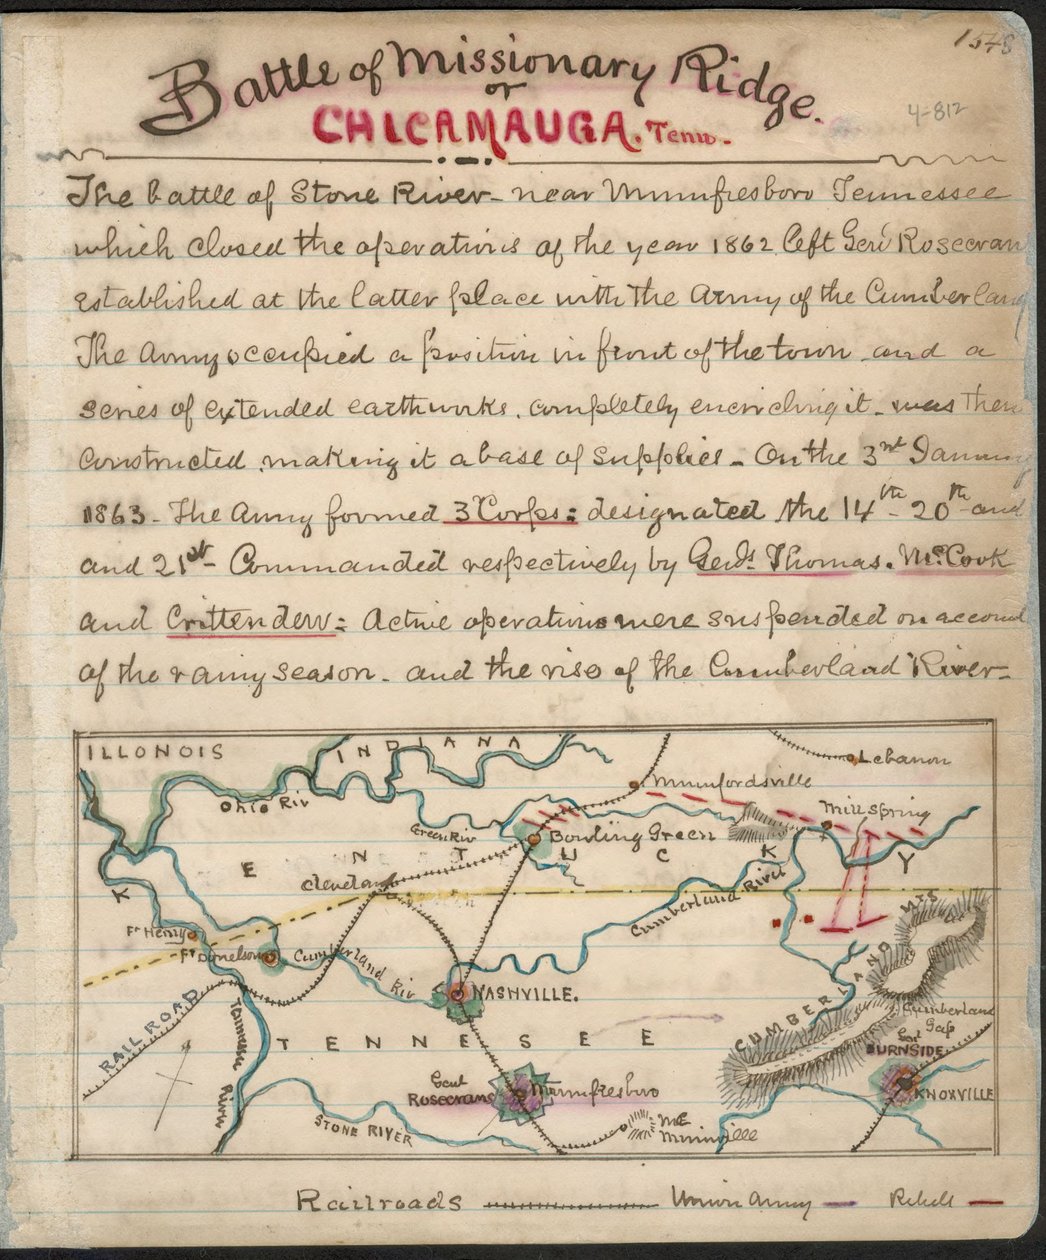 1548
Battle of Missionary Ridge.
or
4-812
CHICAMAUGA. Tenn.
The battle of Stone River - near Murmfresboro Tennessee
which closed the operations of the year 1862 left Genl Rosecran
established at the latter place with the Army of the Cumberland
The Army occupied a position in front of the town and a
series of extended earthworks. completely encircling it - was then
constructed making it a base of supplies - On the 3rd January
1863 - The Army formed 3 Corps: designated the 14th - 20th and
and 21st - Commanded respectively by Genls. Thomas. McCook
and Crittenden: Active operations were suspended on account
of the rainy season - and the rise of the Cumberland River -
ILLONOIS
INDIANA
Lebanon
Munfordsville
Ohio Riv
Mill Spring
Green Riv
Bowling Green
KENTUCKY
Cleveland
Cumberland River
Ft Henry
Ft Donelson
Cumberland Riv
NASHVILLE.
CUMBERLAND MTS
RAILROAD
Tennessee River
TENNESSEE
Cumberland
Gap
Genl
BURNSIDE
Genl
Rosecrans
Murmfresboro
KNOXVILLE
STONE RIVER
Mc
Minnville
Railroads
Union Army
Rebell